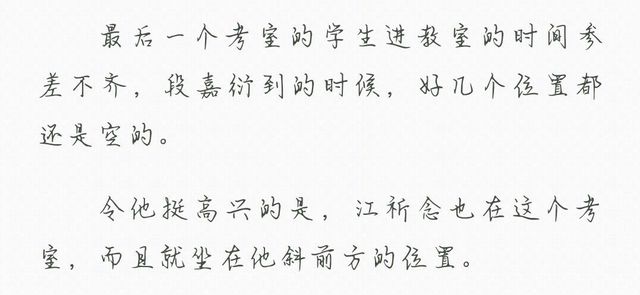 最后一个考室的学生进教室的时间参
差不齐，段嘉衍到的时候，好几个位置都
还是空的。
令他挺高兴的是，江祈念也在这个考
室，而且就坐在他斜前方的位置。